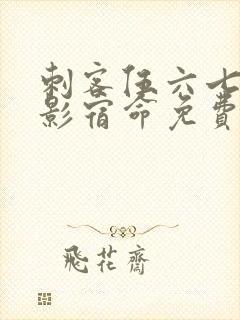 刺客伍六七
影宿命免费
飛花齋